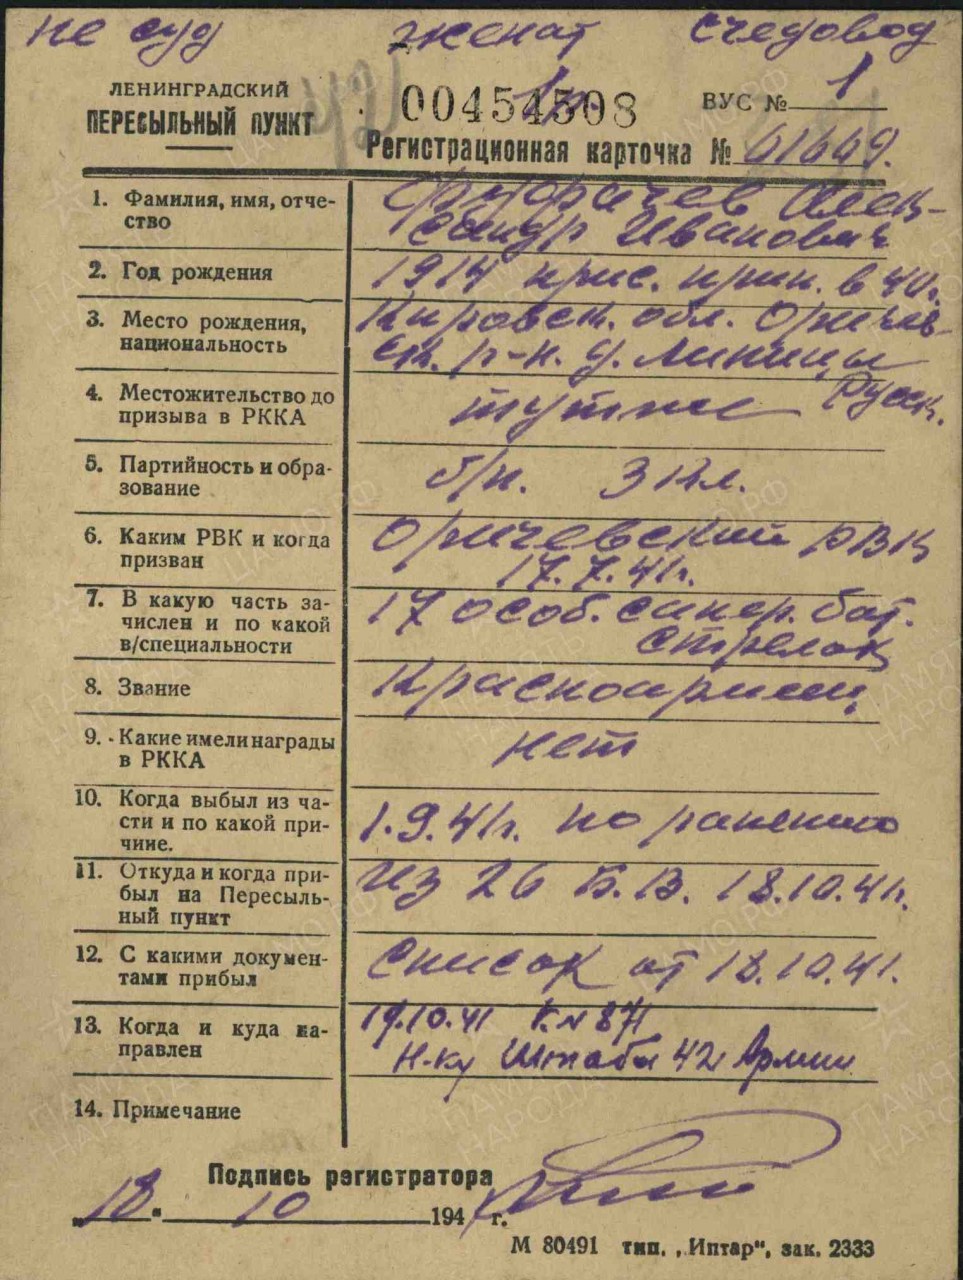 не суд женат счетовод
ЛЕНИНГРАДСКИЙ
ПЕРЕСЫЛЬНЫЙ ПУНКТ
00454508
ВУС № 1
Регистрационная карточка № 61649.
1. Фамилия, имя, отче-
ство
Алек-
сандр Иванович
2. Год рождения
1914 прис. прин. в 40г.
3. Место рождения,
национальность
Кировск. обл. Оричев-
ск. р-н. д.
Русск.
4. Местожительство до
призыва в РККА
тут же
5. Партийность и обра-
зование
б/п. 3 кл.
6. Каким РВК и когда
призван
Оричевский РВК
17.7.41г.
7. В какую часть за-
числен и по какой
в/специальности
17 особ. сапер. бат.
стрелок
8. Звание
Красноармеец
9. Какие имели награды
в РККА
нет
10. Когда выбыл из ча-
сти и по какой при-
чине.
1.9.41г. по ранению
11. Откуда и когда при-
был на Пересыль-
ный пункт
из 26 Б.В. 18.10.41г.
12. С какими докумен-
тами прибыл
список от 18.10.41.
13. Когда и куда на-
правлен
19.10.41 К.№871
Н-ку Штаба 42 Армии
14. Примечание
Подпись регистратора
„18“ 10 1941 г.
М 80491 тип. „Иптар“, зак. 2333